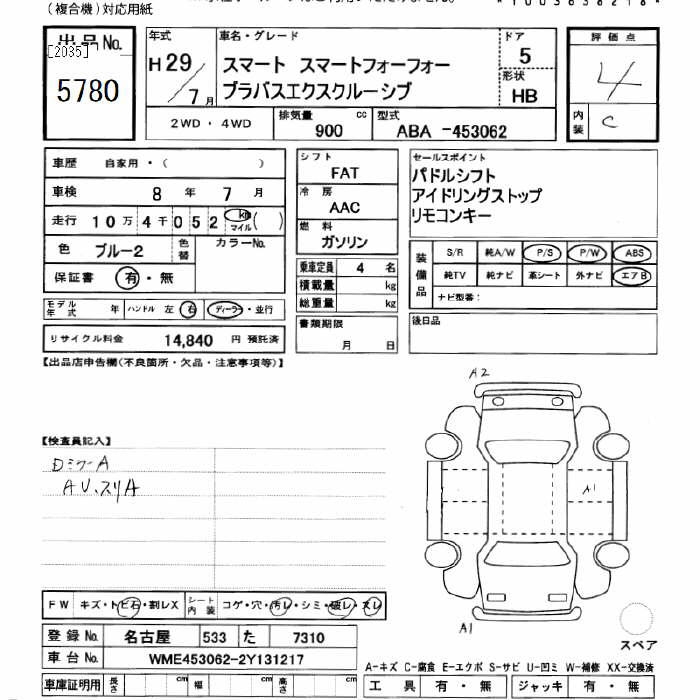 (複合機)対応用紙
出品No.
[2035]
5780
年式
H29/7月
車名・グレード
スマート スマートフォーフォー
ブラバスエクスクルーシブ
ドア
5
形状
HB
評価点
4
内装
C
2WD・4WD
排気量
900
cc
型式
ABA -453062
車歴 自家用・( )
車検 8年 7月
走行 10万4千052 km マイル ( )
色 ブルー2
色替
カラーNo.
保証書 有・無
モデル年式 年
ハンドル 左 右
ディーラー・並行
リサイクル料金 14,840 円 預託済
シフト
FAT
冷房
AAC
燃料
ガソリン
乗車定員 4 名
積載量 kg
総重量 kg
書類期限
月 日
セールスポイント
パドルシフト
アイドリングストップ
リモコンキー
装備品
S/R 純A/W P/S P/W ABS
純TV 純ナビ 革シート 外ナビ エアB
ナビ型番:
後日品
【出品店申告欄(不良箇所・欠品・注意事項等)】
【検査員記入】
ロミラーA
AU、スリA
A2
A1
A1
スペア
FW キズ・トビ石・割レX
シート内装 コゲ・穴・汚レ・シミ・破レ・スレ
登録No. 名古屋 533 た 7310
車台No. WME453062-2Y131217
車庫証明用 長さ cm 幅 cm 高さ cm
A-キズ C-腐食 E-エクボ S-サビ U-凹ミ W-補修 XX-交換済
工具 有・無 ジャッキ 有・無